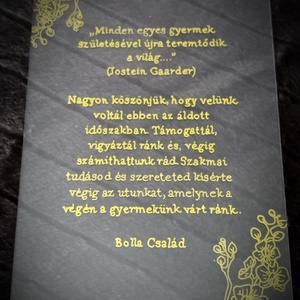 „Minden egyes gyermek
születésével újra teremtődik
a világ...."
(Jostein Gaarder)
Nagyon köszönjük, hogy velünk
voltál ebben az áldott
időszakban. Támogattál,
vigyáztál ránk és, végig
számíthattunk rád. Szakmai
tudásod és szereteted kísérte
végig az utunkat, amelynek a
végén a gyermekünk várt ránk.
Bolla Család